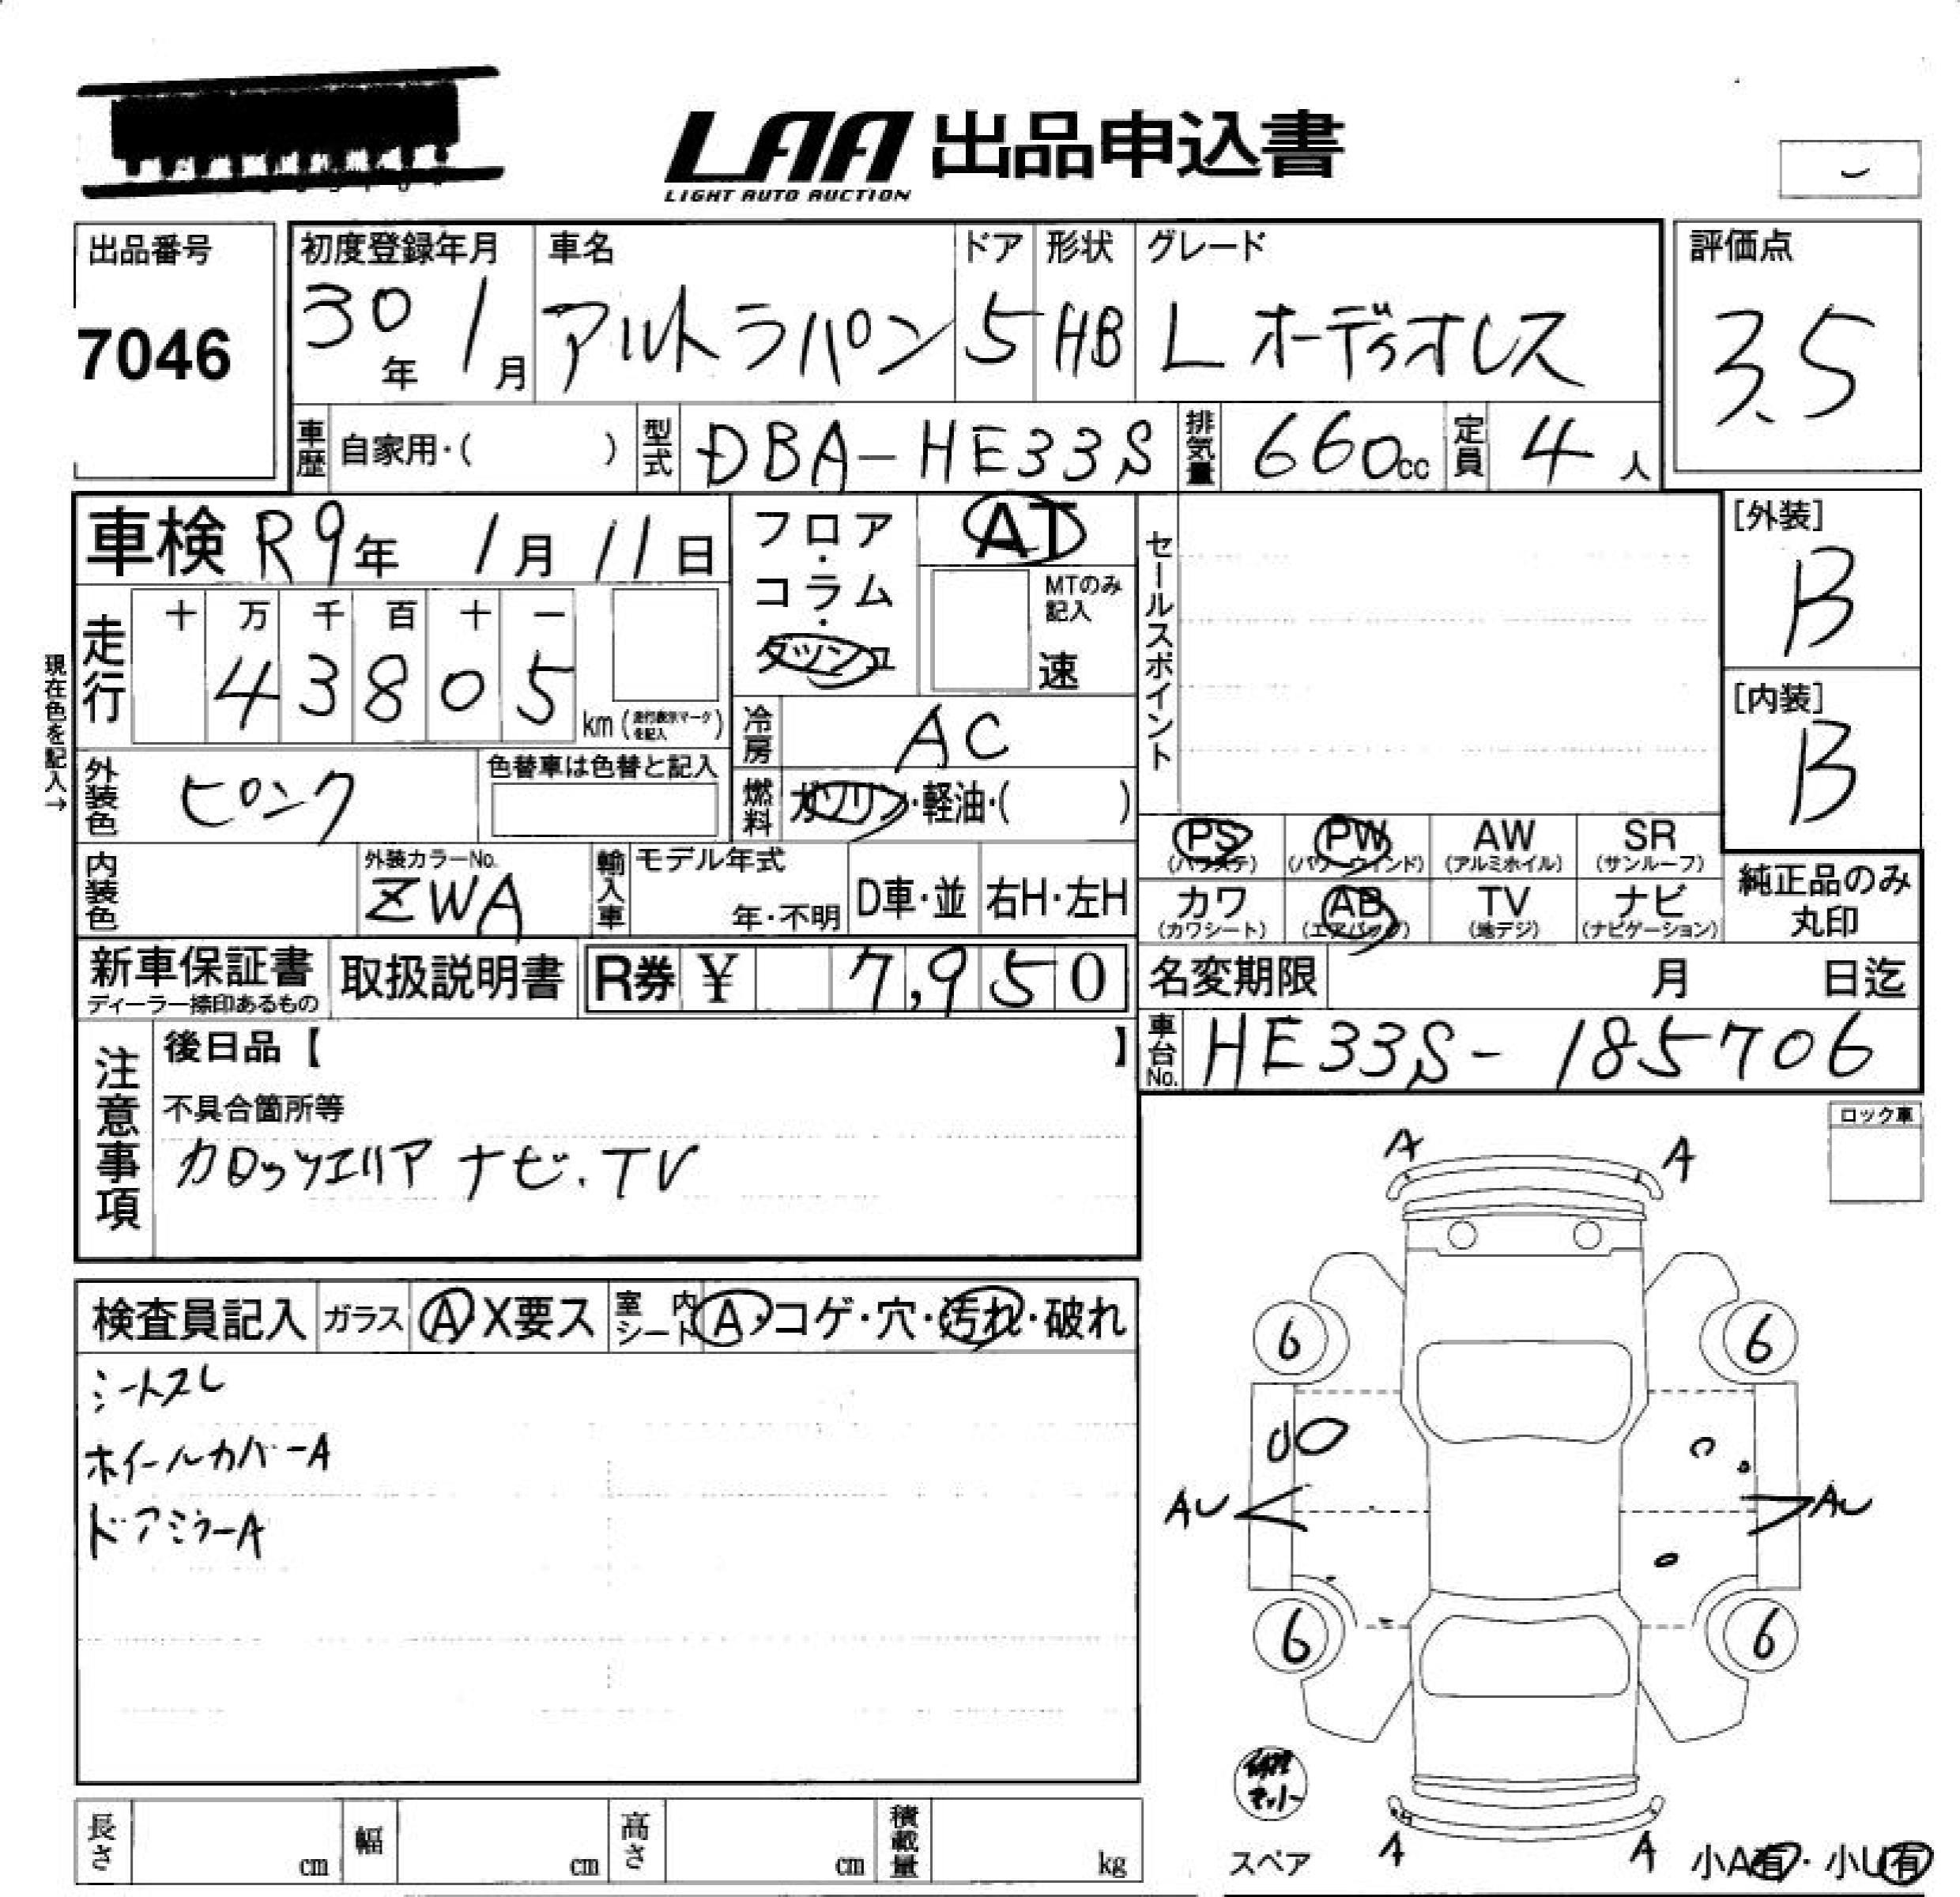 LAA 出品申込書
LIGHT AUTO AUCTION
出品番号
7046
初度登録年月
30年 1月
車名
アルトラパン
ドア
5
形状
HB
グレード
L オーディオレス
評価点
3.5
車歴 自家用・( )
型式 DBA-HE33S
排気量 660cc
定員 4人
車検 R9年 1月 11日
走行
十 万 千 百 十 一
4 3 8 0 5 km (走行表示マークを記入)
現在色を記入→
外装色 ピンク
色替車は色替と記入
内装色
外装カラーNo.
ZWA
フロア・コラム・ダッシュ
AT
MTのみ記入
速
冷房 AC
燃料 ガソリン・軽油・( )
輸入車
モデル年式
年・不明
D車・並
右H・左H
セールスポイント
[外装]
B
[内装]
B
PS (パワステ)
PW (パワーウィンド)
AW (アルミホイル)
SR (サンルーフ)
カワ (カワシート)
AB (エアバッグ)
TV (地デジ)
ナビ (ナビゲーション)
純正品のみ丸印
新車保証書
ディーラー捺印あるもの
取扱説明書
R券 ¥ 7,950
名変期限 月 日迄
車台No. HE33S-185706
注意事項
後日品【 】
不具合箇所等
カロッツェリア ナビ.TV
ロック車
検査員記入
ガラス A X要ス
室内シート A・コゲ・穴・汚れ・破れ
シートスレ
ホイールカバーA
ドアミラーA
A A
6 6
AU AU
6 6
A A
スペア
小A有・小U有
長さ cm
幅 cm
高さ cm
積載量 kg